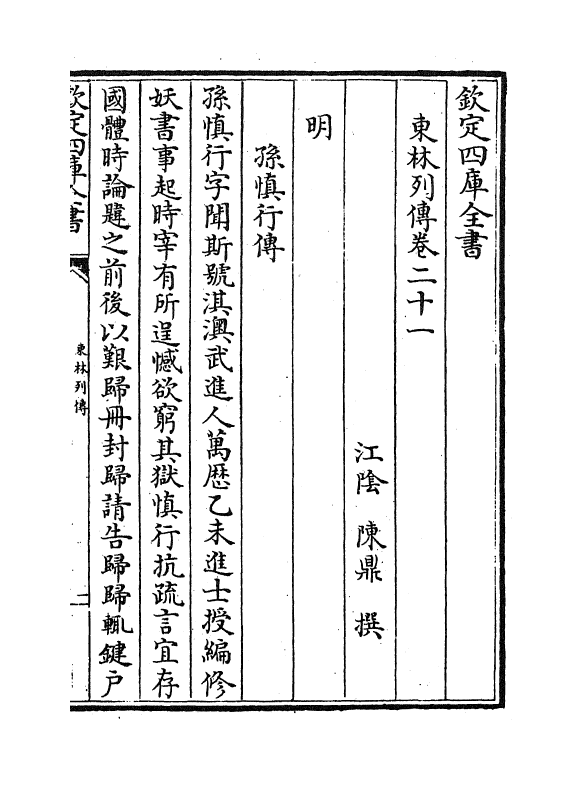 欽定四庫全書
東林列傳卷二十一
江陰 陳鼎 撰
明
孫慎行傳
孫慎行字聞斯號淇澳武進人萬歴乙未進士授編修
妖書事起時宰有所逞憾欲窮其獄慎行抗疏言宜存
國體時論韙之前後以艱歸冊封歸請告歸歸輒鍵户
欽定四庫全書
東林列傳